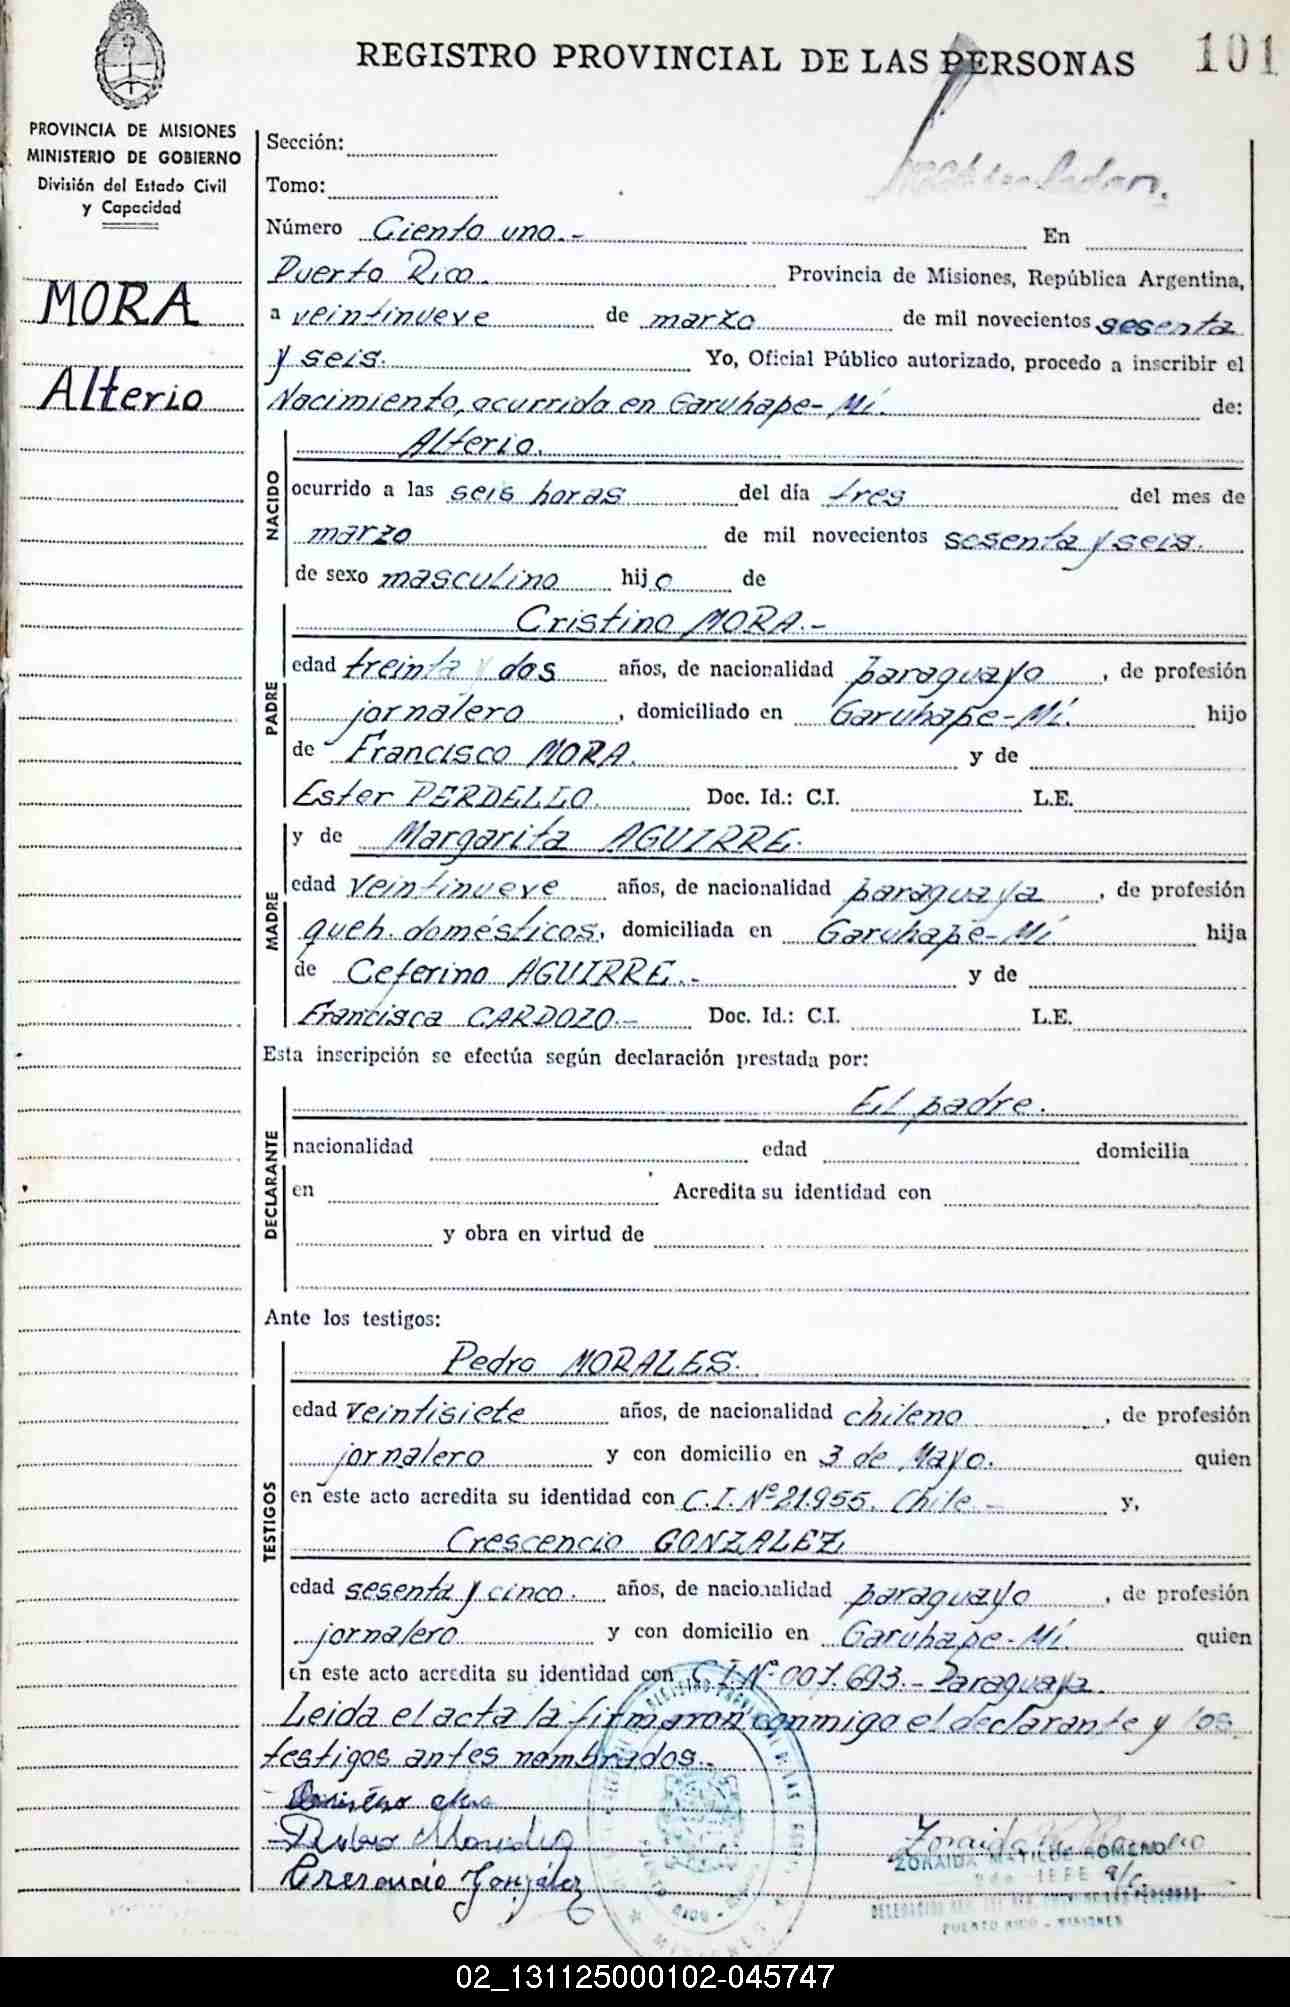 REGISTRO PROVINCIAL DE LAS PERSONAS 101
PROVINCIA DE MISIONES
MINISTERIO DE GOBIERNO
División del Estado Civil
y Capacidad
MORA
Alterio
Sección:
Tomo:
Número Ciento uno.- En
Puerto Rico. Provincia de Misiones, República Argentina,
a veintinueve de marzo de mil novecientos sesenta
y seis. Yo, Oficial Público autorizado, procedo a inscribir el
Nacimiento, ocurrido en Garuhape-Mí. de:
NACIDO
Alterio.
ocurrido a las seis horas del día tres del mes de
marzo de mil novecientos sesenta y seis.
de sexo masculino hijo de
PADRE
Cristino MORA.-
edad treinta y dos años, de nacionalidad paraguayo, de profesión
jornalero, domiciliado en Garuhape-Mí. hijo
de Francisco MORA. y de
Ester PERDELLO. Doc. Id.: C.I. L.E.
MADRE
y de Margarita AGUIRRE.
edad veintinueve años, de nacionalidad paraguaya, de profesión
queh. domésticos, domiciliada en Garuhape-Mí. hija
de Ceferino AGUIRRE.- y de
Francisca CARDOZO.- Doc. Id.: C.I. L.E.
Esta inscripción se efectúa según declaración prestada por:
DECLARANTE
El padre.
nacionalidad edad domicilia
en Acredita su identidad con
y obra en virtud de
Ante los testigos:
TESTIGOS
Pedro MORALES.
edad veintisiete años, de nacionalidad chileno, de profesión
jornalero y con domicilio en 3 de Mayo. quien
en este acto acredita su identidad con C.I. Nº 21.955. Chile.- y,
Crescencio GONZALEZ
edad sesenta y cinco. años, de nacionalidad paraguayo, de profesión
jornalero y con domicilio en Garuhape-Mí. quien
en este acto acredita su identidad con C.I.Nº 001.693.- Paraguaya.
Leida el acta la firmaron conmigo el declarante y los
testigos antes nombrados.-
Crescencio González
ZORAIDA MATILDE ROMERO
JEFE a/c
PUERTO RICO - MISIONES
02_131125000102-045747